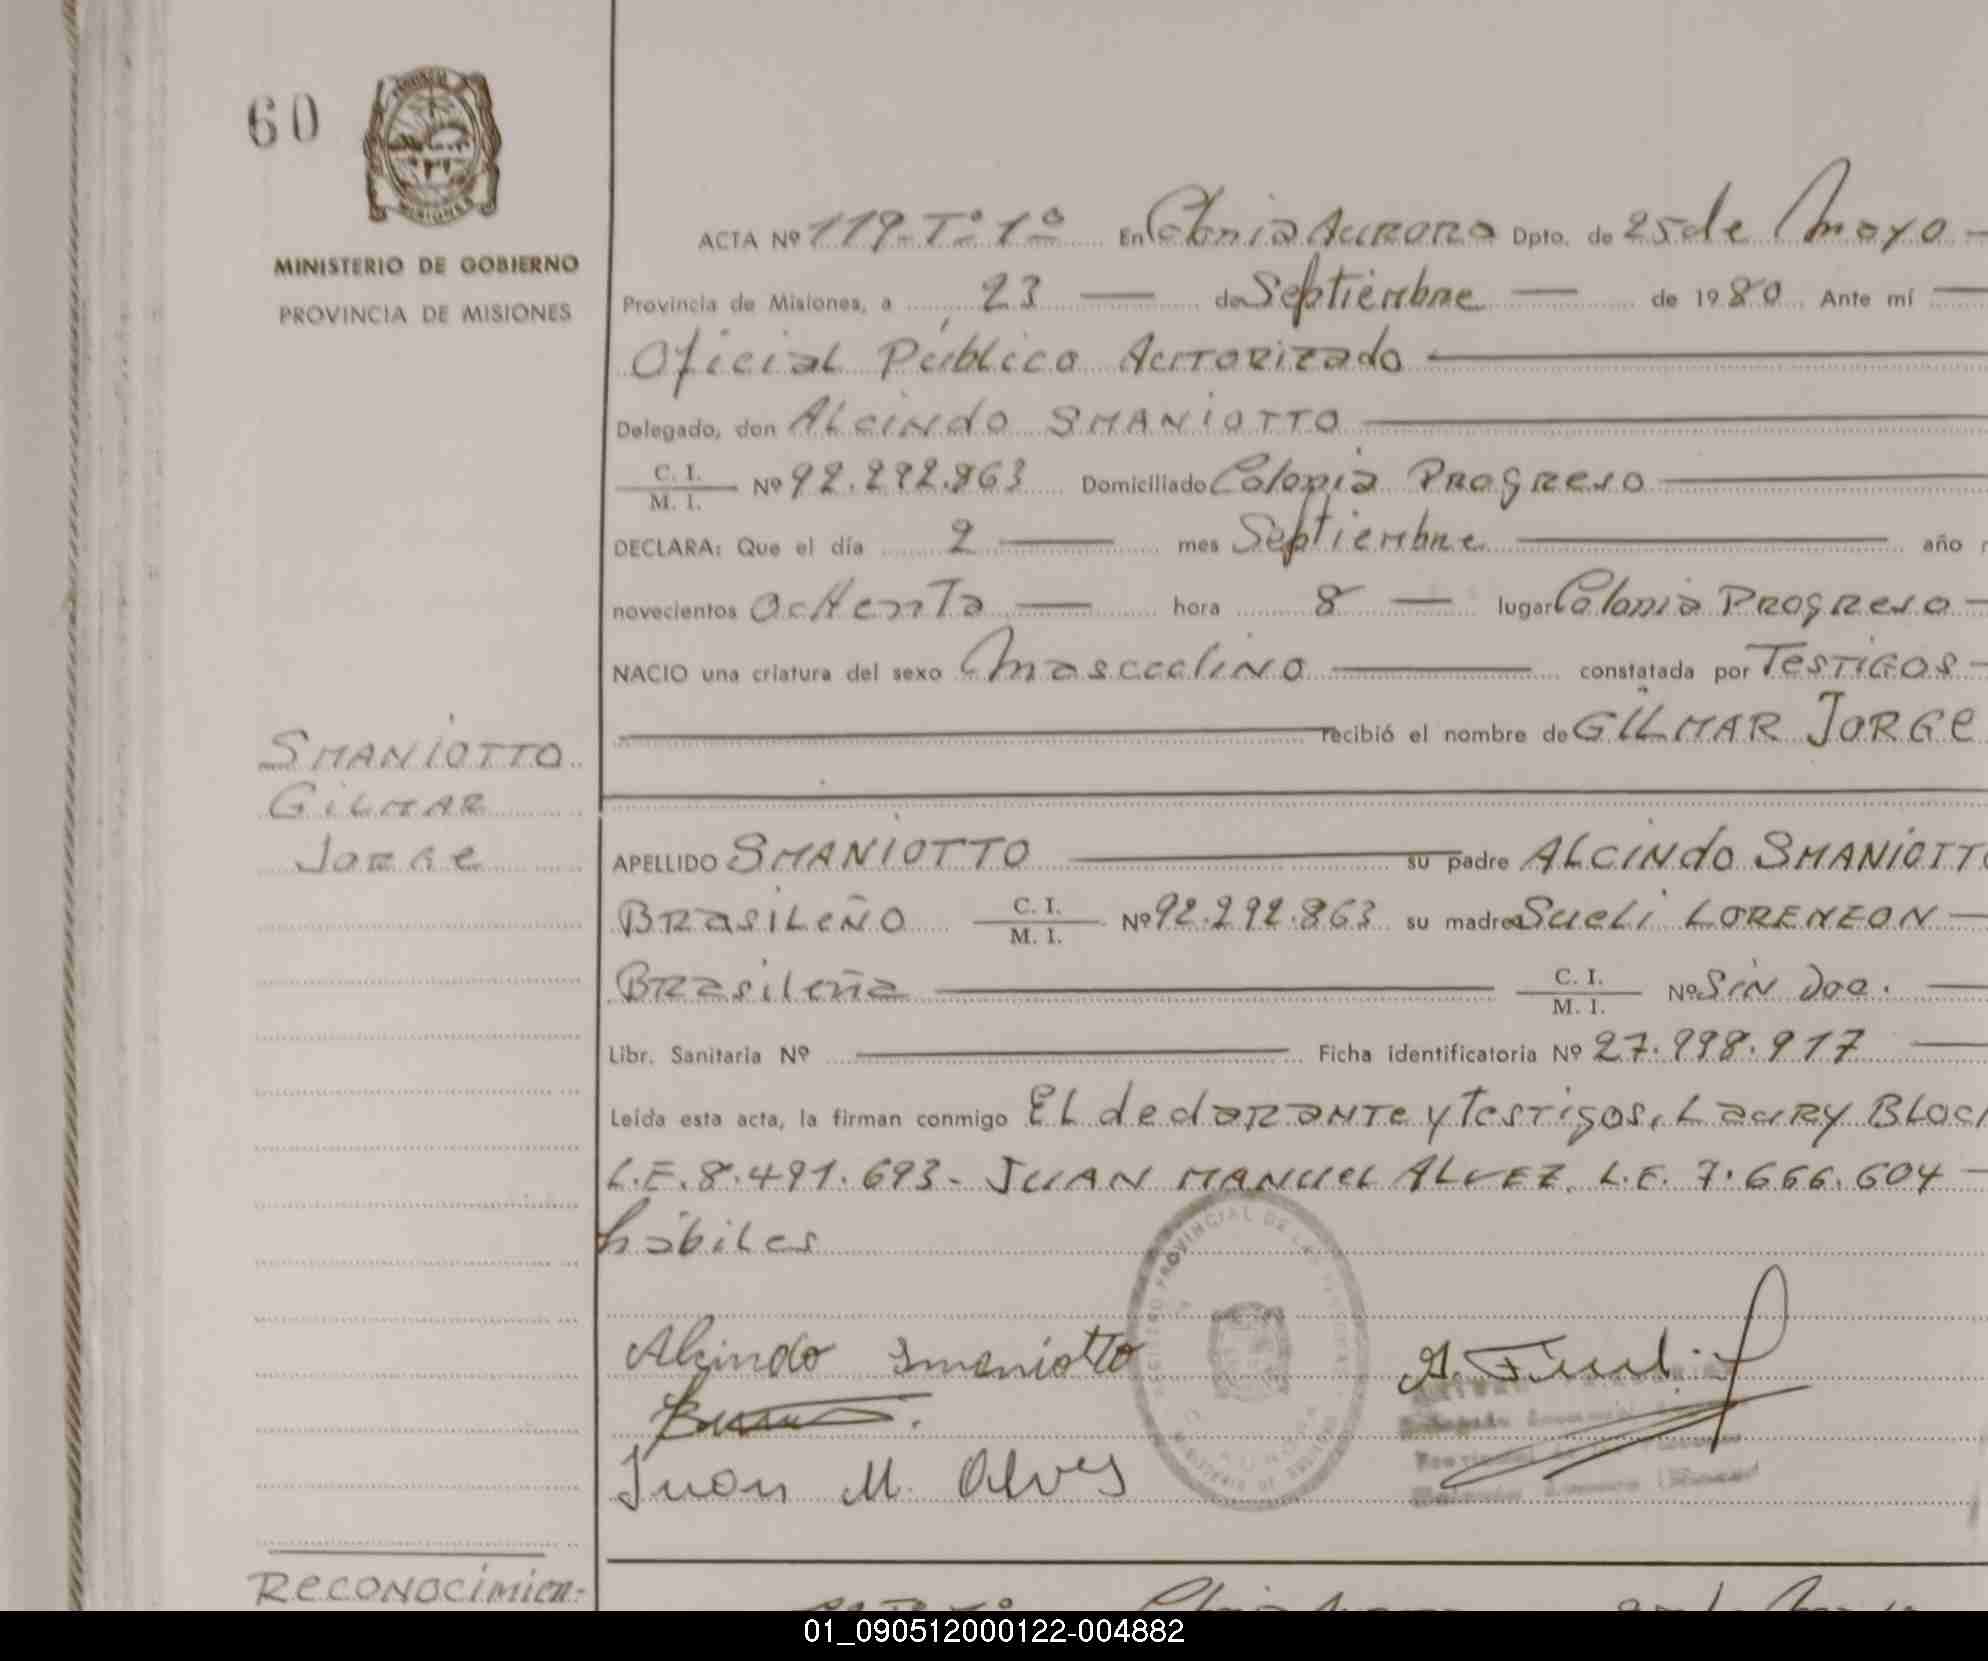 60
MINISTERIO DE GOBIERNO
PROVINCIA DE MISIONES
ACTA Nº 119-Tº 1º En Colonia Aurora Dpto. de 25 de Mayo -
Provincia de Misiones, a 23 — de Septiembre — de 1980 Ante mí —
Oficial Público Autorizado —
Delegado, don Alcindo SMANIOTTO —
C. I.
M. I. Nº 92.292.863 Domiciliado Colonia Progreso —
DECLARA: Que el día 2 — mes Septiembre — año
novecientos ochenta — hora 8 — lugar Colonia Progreso -
NACIO una criatura del sexo Masculino — constatada por Testigos -
— recibió el nombre de GILMAR JORGE
SMANIOTTO
GILMAR
Jorge
APELLIDO SMANIOTTO — su padre ALCINDO SMANIOTTO
Brasileño C. I.
M. I. Nº 92.292.863 su madre Sueli LORENZON —
Brasileña — C. I.
M. I. Nº Sin Doc. —
Libr. Sanitaria Nº — Ficha identificatoria Nº 27.998.917 —
Leída esta acta, la firman conmigo El declarante y Testigos, Laury
L.E. 8.491.693- JUAN MANUEL ALVEZ L.E. 7.666.604 -
hábiles
Alcindo Smaniotto
Juan M. Alves
Reconocimien-
01_090512000122-004882